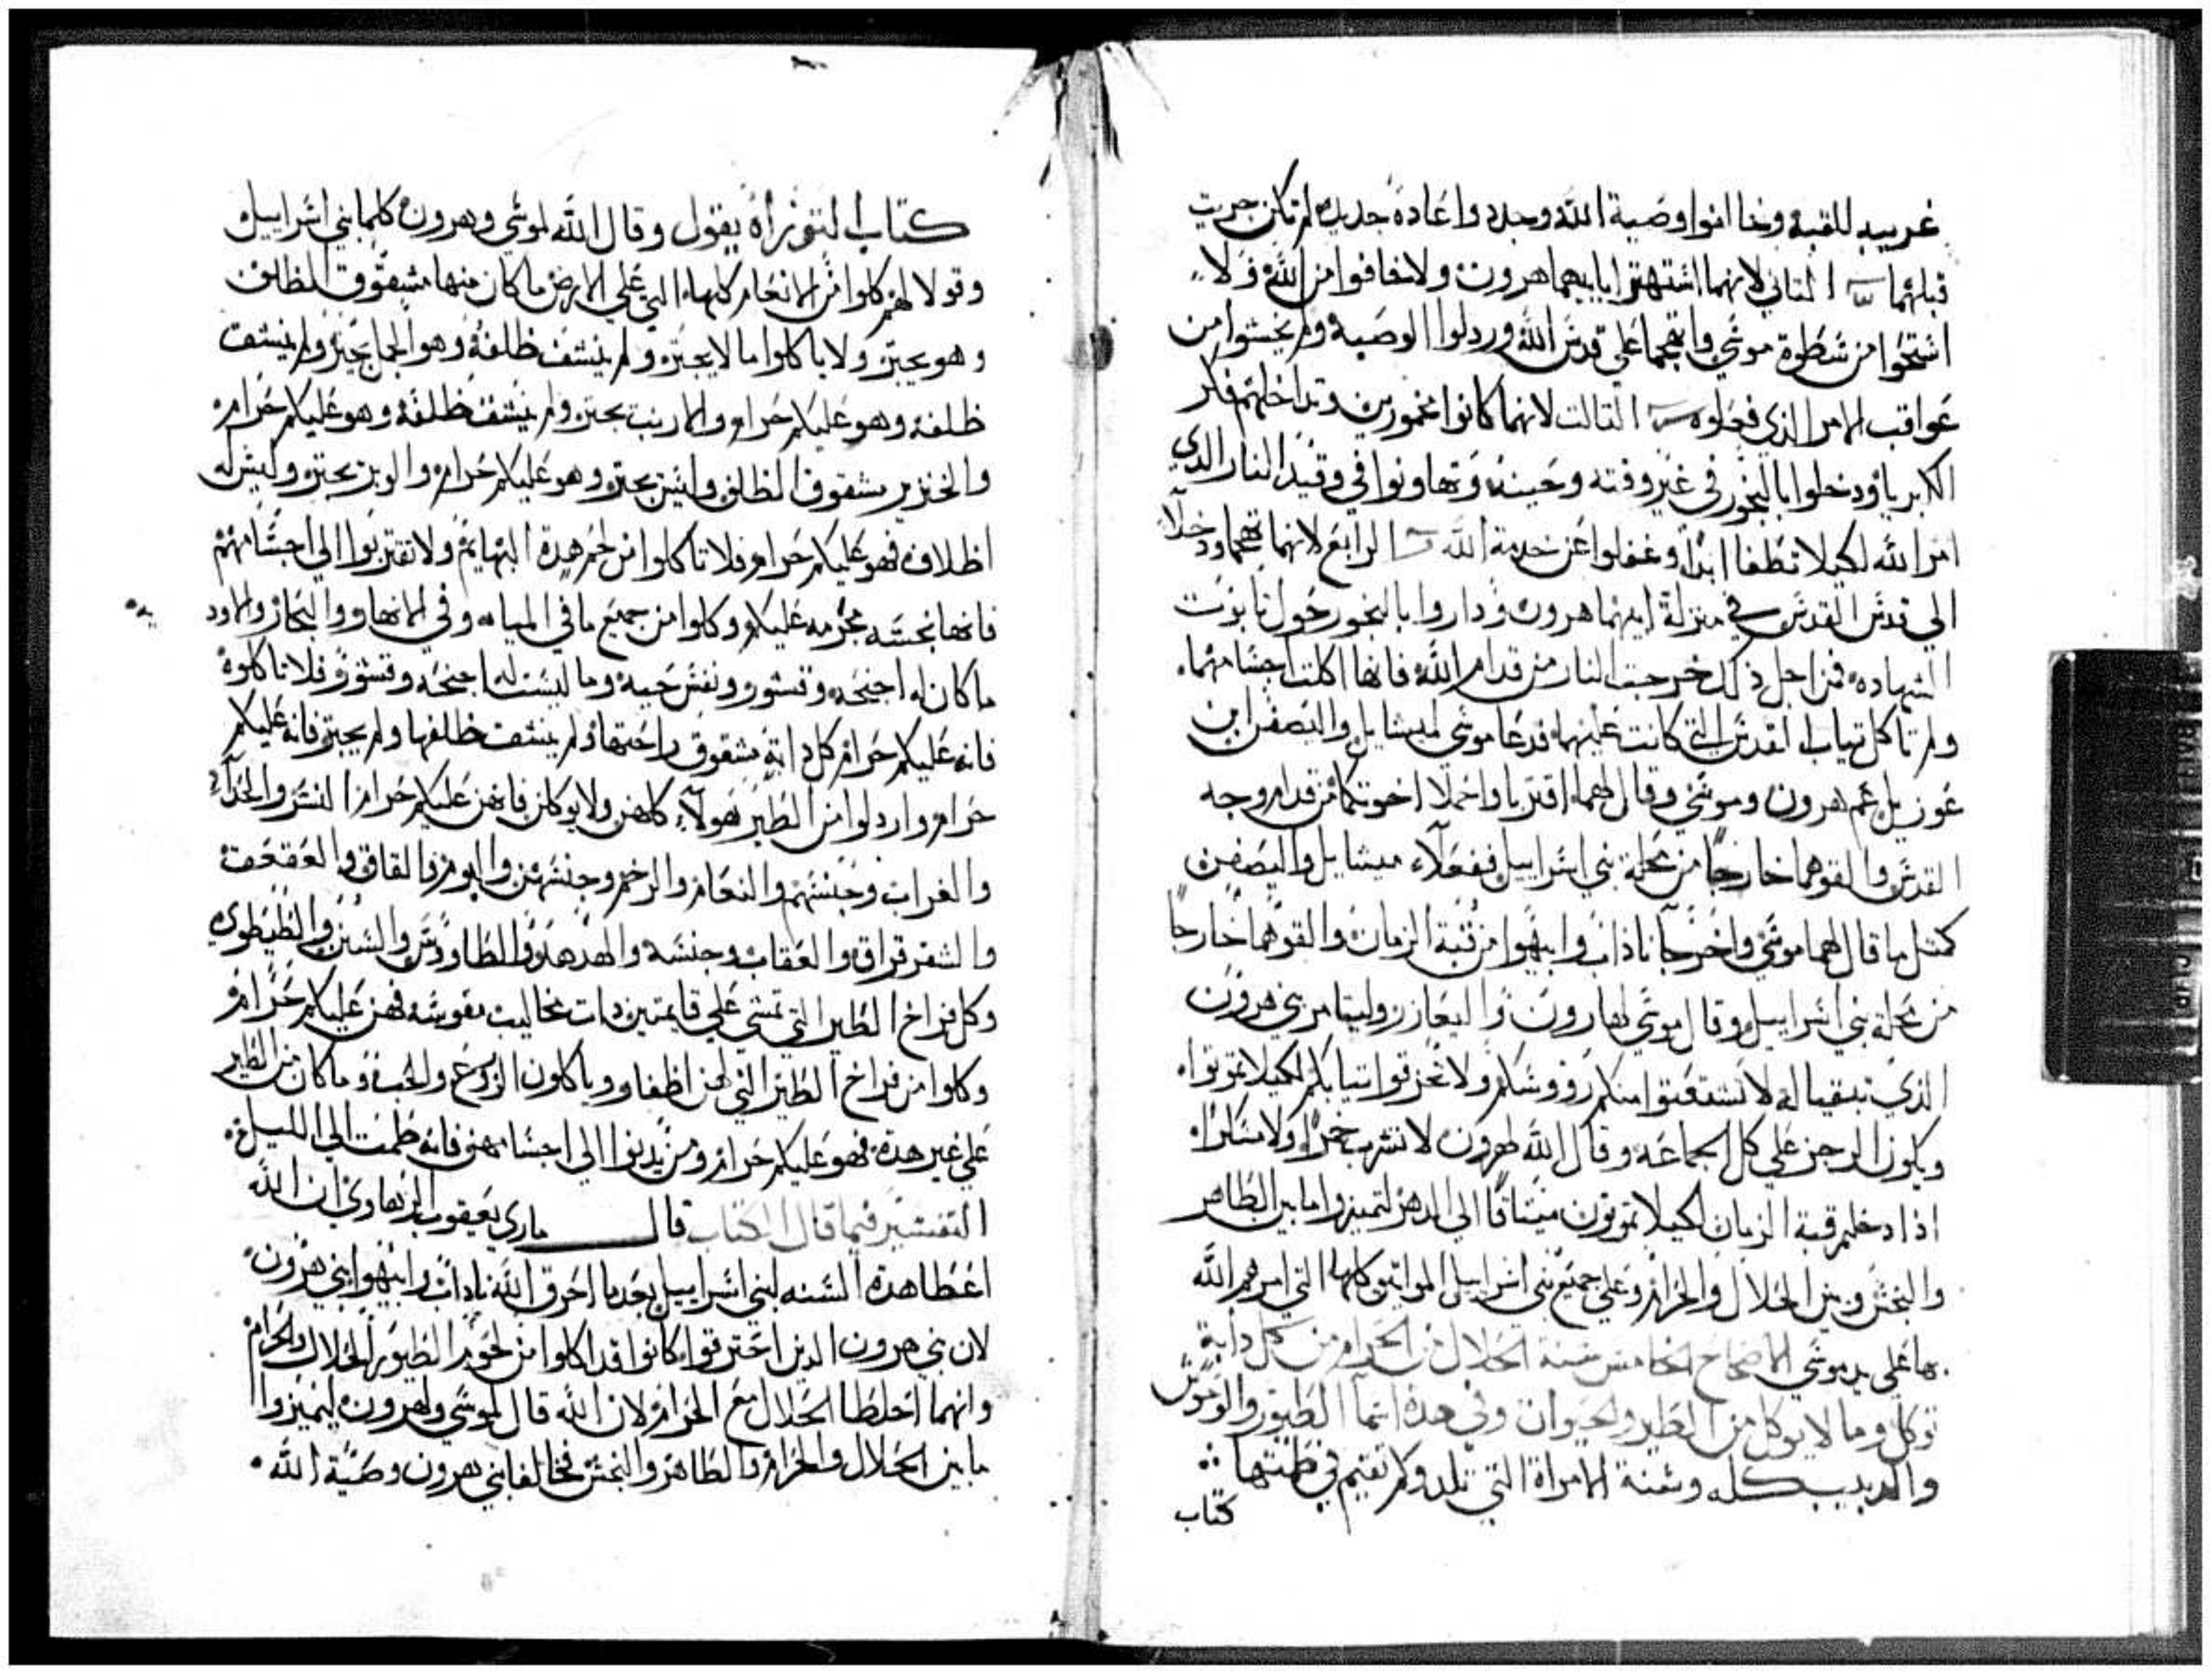 غريبه للقبة وخالفوا وصية الله وجددوا عادة جديده لم تكن جرت
قبلهما الثاني لانهما اشتهتوا بابيهما هرون ولا خافوا من الله ولا
اشتحوا من سطوة موسي واتهجما علي قدس الله وردلوا الوصيه ولم يخشوا من
عواقب الامر الذي فعلوه التالت لانهما كانوا مخمورين وتداخلهم فكر
الكبريا ودخلوا بالبخور في غير وقته وحينه وتهاونوا في وقيد النار الدي
امر الله لكيلا تطفا ابدا وغفلوا عن خدمة الله الرابع لانهما تهجما ودخلا
الي قدس القدس في منزلة ابيهما هرون وداروا بالبخور حول تابوت
الشهاده فمن اجل ذلك خرجت النار من قدام الله فانها اكلت اجسامهما
ولم تاكل تياب القدس التي كانت عليهما فدعا موسي لميشايل واليصفن ابن
عوزيل عم هرون وموسي وقال لهما اقتربا واحملا اخوتكما من قدام وجه
القدس والقوهما خارجًا من محلة بني اسراييل ففعلاء ميشايل واليصفن
كمتل ما قال لهما موسي واخرجا ناداب وابيهوا من قبة الزمان والقوهما خارجًا
من محلة بني اسراييل وقال موسي لهارون واليعازر وليتامر بني هرون
الذي تبقيا له لا تشدقوا منكم رووسكم ولا تخرقوا تيابكم لكيلا تموتوا
ويكون الرجز علي كل الجماعه وقال الله لهرون لا تشرب خمرًا ولا سكرًا
اذا دخلتم قبة الزمان لكيلا تموتون ميتاقًا الي الدهر لتميزوا ما بين الطاهر
والنجس وبين الحلال والحرام وعلي جميع بني اسراييل المواتيق كلها التي امرهم الله
بها علي يد موسي الاصحاح الخامس سنة الحلال من الحرام من كل دابة
توكل وما لا يوكل من الطير والحيوان وفي هده اسما الطيور والوحوش
والدبيب كله وسنة الامراة التي تلد ولم تقيم في طمتها
كتاب
كتاب التوراة يقول وقال الله لموسي وهرون كلما بني اسراييل
وقولا لهم كلوا من الانعام كلها التي علي الارض ما كان منها مشقوق الظلف
وهو يجتر ولا ياكلوا ما لا يجتر ولم ينشف ظلفه وهو الجمل يجتر ولم ينشف
ظلفه وهو عليكم حرام والارنب يجتر ولم ينشف ظلفه وهو عليكم حرام
والخنزير مشقوق الظلف وليس يجتر وهو عليكم حرام والوبر يجتر وليس له
اظلاف فهو عليكم حرام فلا تاكلوا من لحم هده البهايم ولا تقتربوا الي اجسامهم
فانها نجسه محرمه عليكم وكلوا من جميع ما في المياه وفي الانهار والبحار والاود
يه
ما كان له اجنحه وقشور ونفس حيه وما ليست له اجنحه وقشور فلا تاكلوه
فانه عليكم حرام كل دابة مشقوق راحتها ولم ينشف ظلفها ولم يجتر فانه عليكم
حرام واردلوا من الطير هولاء كلهن ولا يوكلن فانهن عليكم حرام النسر والحداء
والغراب وجنسهم والنعام والرخم وجنسهن والبوم والقاق والعقعق
والشقرقراق والعقاب وجنسه والهدهد والطاووس والطيطوي
وكل فراخ الطير التي تمشي علي قايمتين دات مخاليب مقوسه فهن عليكم حرام
وكلوا من فراخ الطير التي لهن اظفار وياكلون الزرع والحب وما كان من الطير
علي غير هده فهو عليكم حرام ومن يدنوا الي اجسامهن فانه طمت الي الليل
التفسير فيما قال الكتاب قال ماري يعقوب الرهاوي ان الله
اعطا هده السنه لبني اسراييل بعد ما احرق الله ناداب وابيهوا بني هرون
لان بني هرون الدين احترقوا كانوا قد اكلوا من لحوم الطيور الحلال والحرام
وانهما اخلطا الحلال مع الحرام لان الله قال لموسي ولهرون ليميزوا
ما بين الحلال والحرام والطاهر والنجس فخالفا بني هرون وصية الله